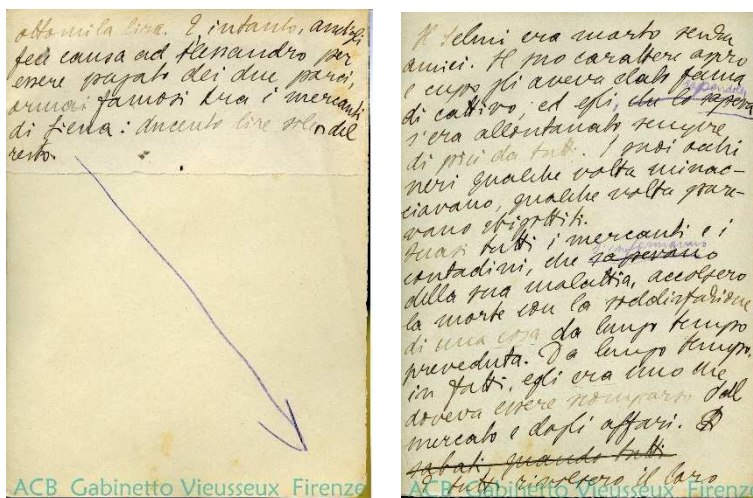 ottomila lire. E, intanto,
fece causa ad Alessandro per
essere pagato dei due porci,
ormai famosi tra i mercanti
di Siena: ducento lire sole del
resto.
ACB Gabinetto Vieusseux Firenze
Il Selmi era morto senza
amici. Il suo carattere aspro
e cupo gli aveva dato fama
di cattivo; ed egli, che lo sapeva
s'era allontanato sempre
di più da tutti. I suoi occhi
neri qualche volta minac-
ciavano, qualche volta pare-
vano sbigottiti.
Quasi tutti i mercanti e i
contadini, che sapevano
della sua malattia, accolsero
la morte con la soddisfazione
di una cosa da lungo tempo
preveduta. Da lungo tempo,
in fatti, egli era uno che
doveva essere scomparso dal
mercato e dagli affari.
sabati, quando tutti
E tutti rivolsero il loro
ACB Gabinetto Vieusseux Firenze